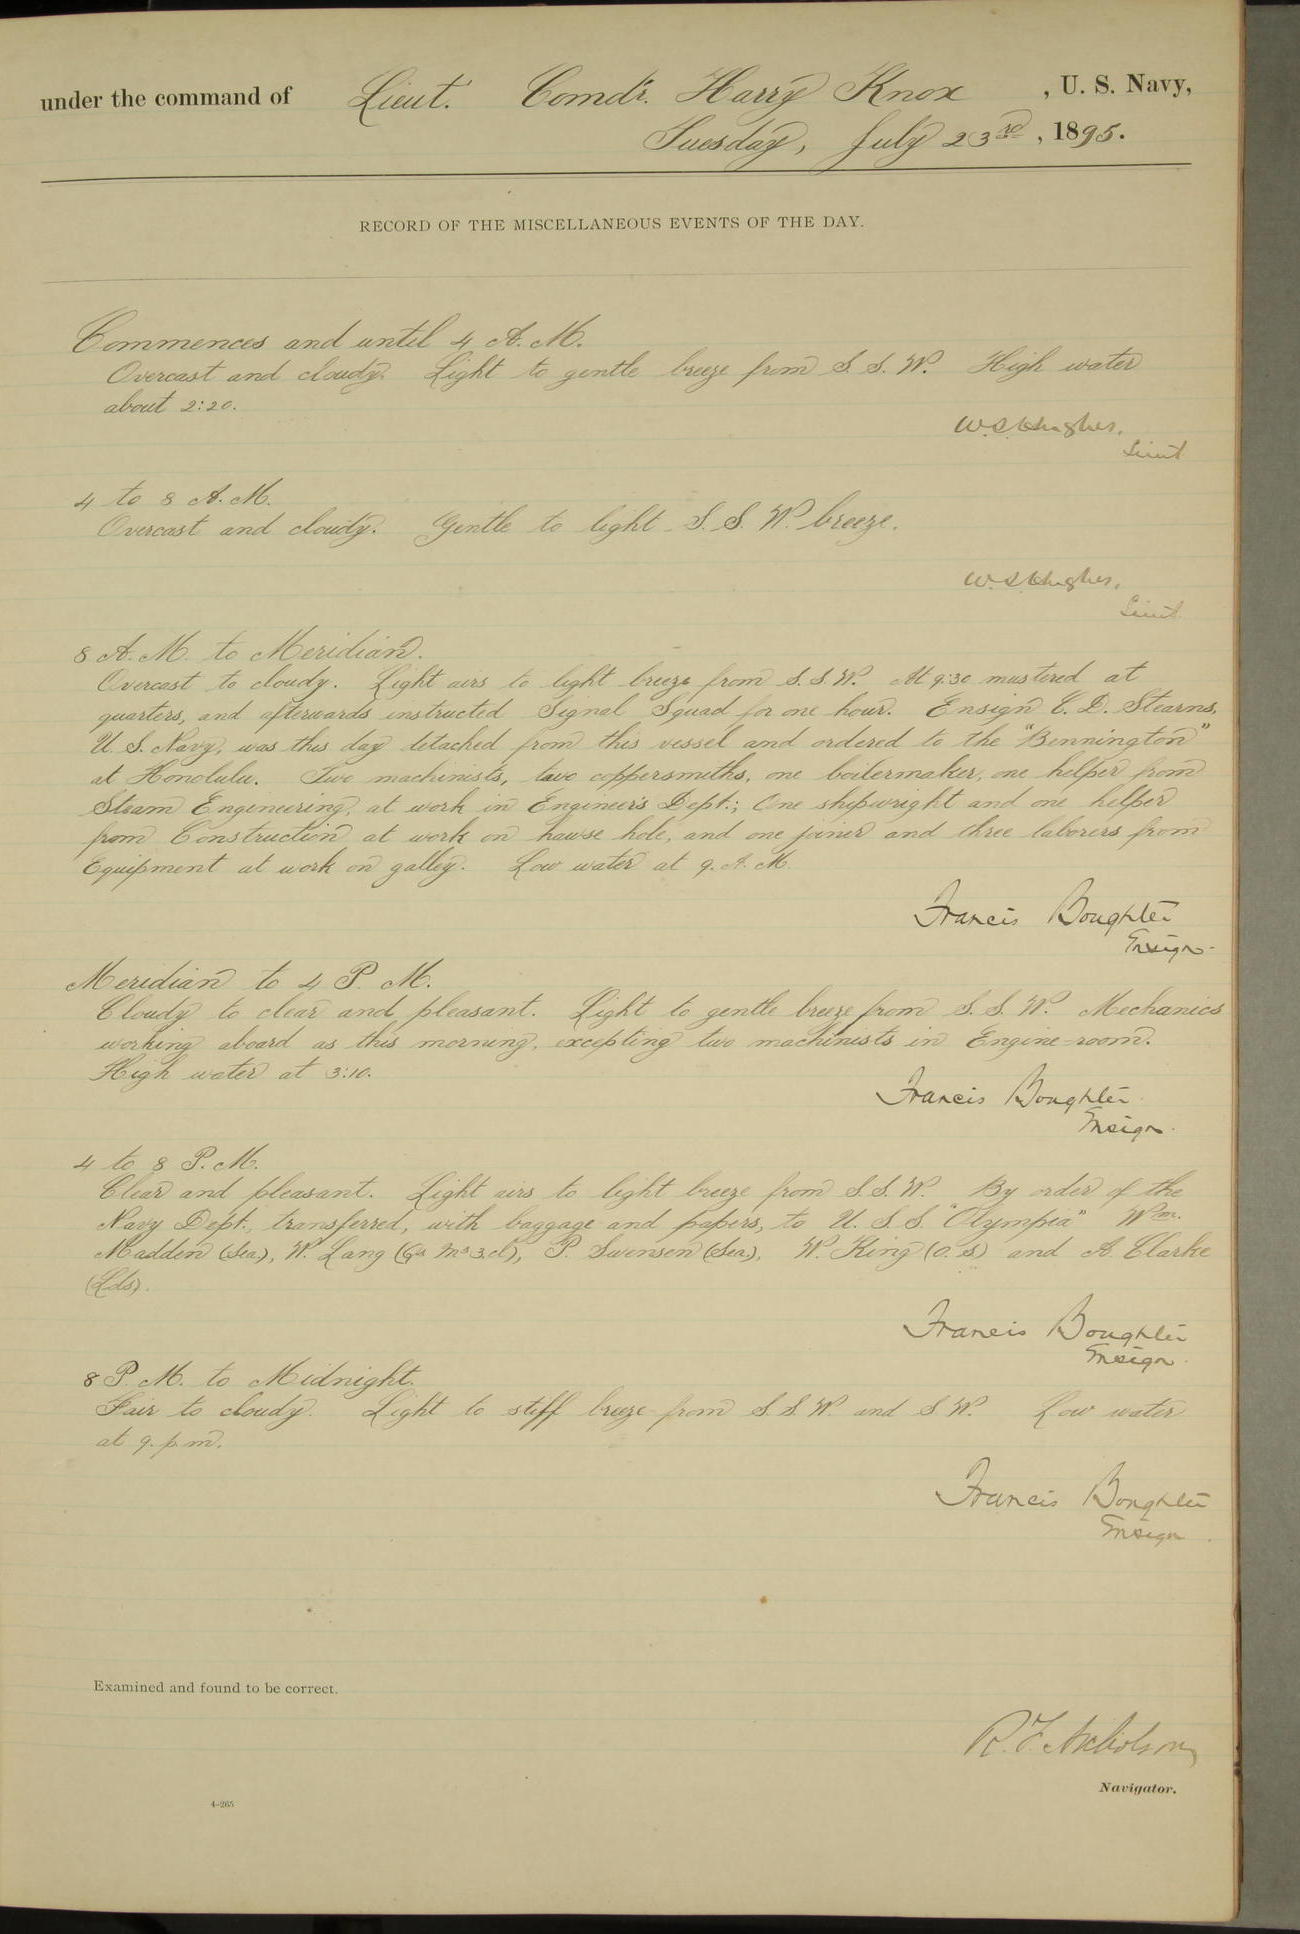 under the command of Lieut. Comdr. Harry Knox, U. S. Navy,
Tuesday, July 23rd, 1895.
RECORD OF THE MISCELLANEOUS EVENTS OF THE DAY.
Commences and until 4 A. M.
Overcast and cloudy. Light to gentle breeze from S. S. W. High water
about 2:20.
W. S. Hughes,
Lieut
4 to 8 A. M.
Overcast and cloudy. Gentle to light S. S. W. breeze.
W. S. Hughes,
Lieut
8 A. M. to Meridian.
Overcast to cloudy. Light airs to light breeze from S. S. W. At 9:30 mustered at
quarters, and afterwards instructed Signal Squad for one hour. Ensign C. D. Stearns,
U. S. Navy, was this day detached from this vessel and ordered to the "Bennington"
at Honolulu. Two machinists, two coppersmiths, one boilermaker, one helper from
Steam Engineering, at work in Engineer's Dept.; One shipwright and one helper
from Construction at work on hawse hole, and one joiner and three laborers from
Equipment at work on galley. Low water at 9. A. M.
Francis Boughter
Ensign.
Meridian to 4 P. M.
Cloudy to clear and pleasant. Light to gentle breeze from S. S. W. Mechanics
working aboard as this morning, excepting two machinists in Engine-room.
High water at 3:10.
Francis Boughter
Ensign.
4 to 8 P. M.
Clear and pleasant. Light airs to light breeze from S. S. W. By order of the
Navy Dept., transferred, with baggage and papers, to U. S. S. "Olympia" Wm.
Madden (Sea.), W. Lang (Gs M 3 cl), P. Swensen (Sea.), W. King (O. S.) and A. Clarke
(Lds).
Francis Boughter
Ensign.
8 P. M. to Midnight.
Fair to cloudy. Light to stiff breeze from S. S. W. and S. W. Low water
at 9. p. m.
Francis Boughter
Ensign.
Examined and found to be correct.
R. F. Nicholson
Navigator.
4-265